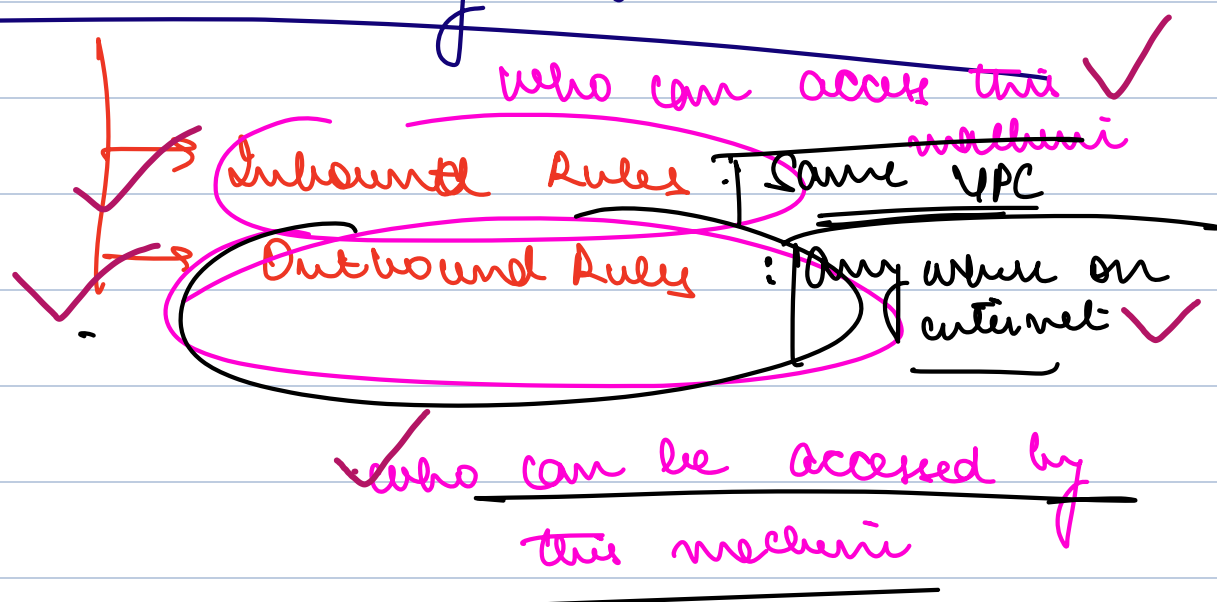 who can access this
machini
Inbound Rules : Same VPC
Outbound Rules : Any where on
internet
who can be accessed by
this machini